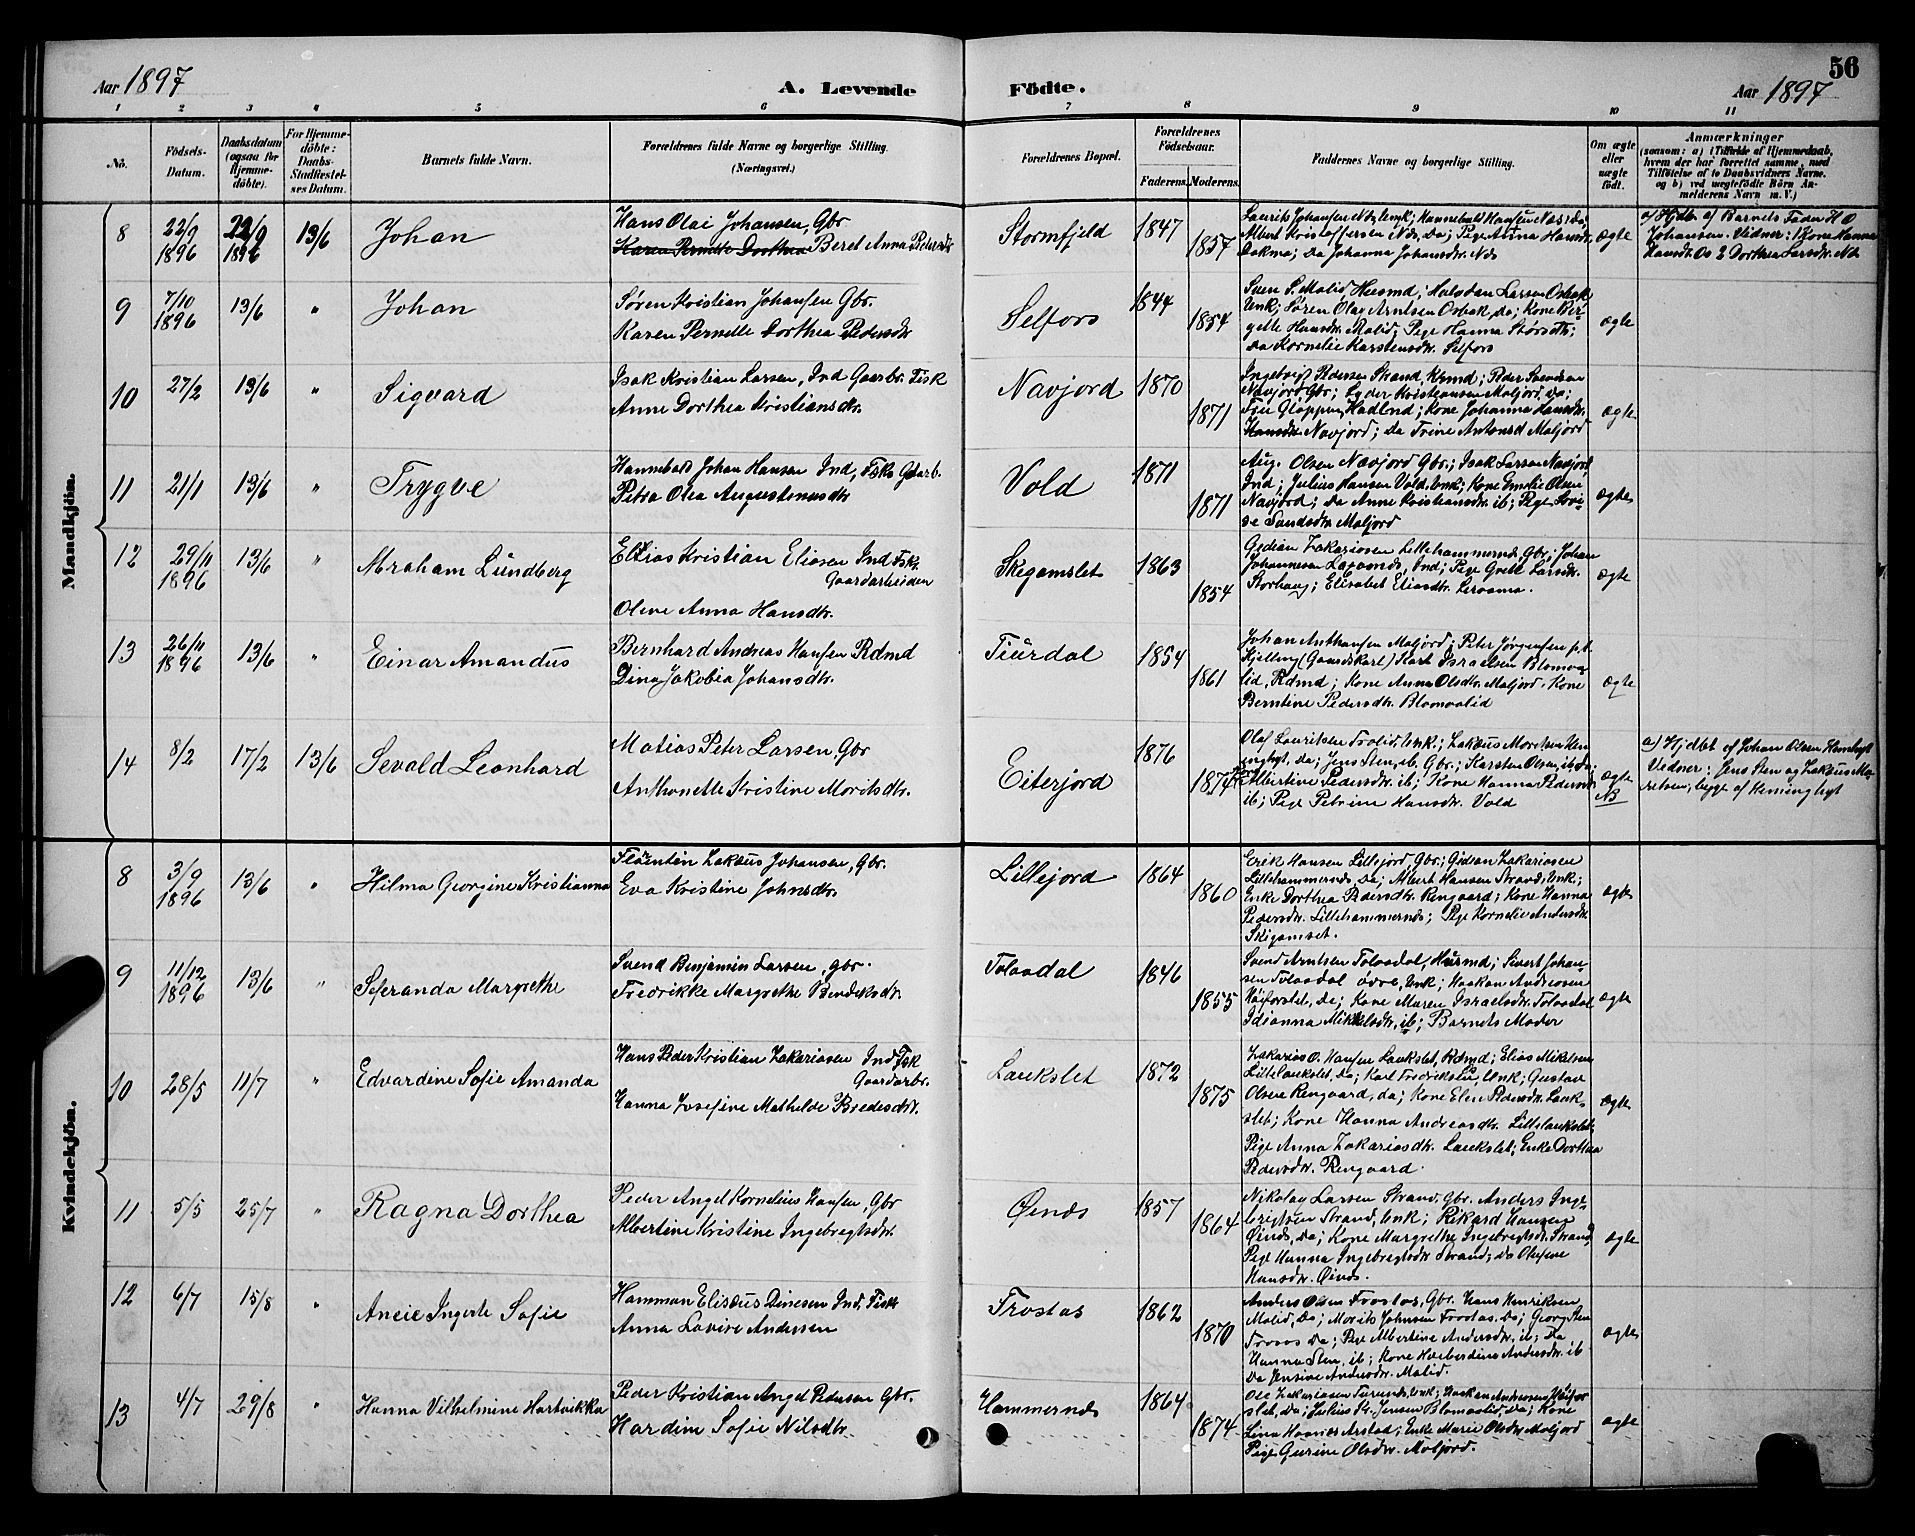 56
Aar 1897
A. Levende Födte.
Aar 1897
1 2 3 4 5 6 7 8 9 10 11
No.
Födsels-Datum.
Daabsdatum (ogsaa for Hjemme-döbte).
For Hjemme-döbte: Daabs-Stadfæstel-ses Datum.
Barnets fulde Navn.
Forældrenes fulde Navne og borgerlige Stilling.
(Næringsvei.)
Forældrenes Bopæl.
Forældrenes Födselsaar.
Faderens. Moderens.
Faddernes Navne og borgerlige Stilling.
Om ægte eller uægte födt.
Anmærkninger
(saasom: a) i Tilfælde af Hjemmedaab, hvem der har forrettet samme, med Tilföielse af to Daabsvidners Navne, og b) ved uægtefödte Börn An-melderens Navn m. V.)
Mandkjön.
8 22/9 1896 22/9 1896 13/6 Johan
Hans Olai Johansen, Gbr
Karen Pernelle Dorthea Beret Anna Pedersdr
Stormfjeld 1847 1857
Laurits Johansen Nds, Unk; Hannebald Hansen Nds, Da;
Albert Kristoffersen Nds, Da; Pige Anna Hansdr.
Dakma; Da Johanna Johansdr. Nds
ægte
a) Hjdbt. af Barnets Fader H O
Johansen. Vidner: Kone Hanna
Hansdr. Os & Dorthea Larsdr. Nds
9 7/10 1896 13/6 " Johan
Søren Kristian Johansen Gbr.
Karen Pernelle Dorthea Pedersdr
Selfors 1844 1854
Sven S. Molid Husmd; Halvdan Larsen Osbak
Unk; Søren Olai Arntsen Osbak, Da; Kone Ber-
gette Hansdr. Molid; Pige Hanna Størsdtr;
Da Kornelie Karstensdr. Selfors
ægte
10 27/2 13/6 " Sigvard
Isak Kristian Larsen, Ind Gaarbr. Fisk
Anne Dorthea Kristiansdtr.
Navjord 1870 1871
Ingebrigt Pedersen Strand, Krmd; Peder Svendsen
Navjord Gbr; Peder Kristiansen Maljord, Da;
Kone Johanna Hansdr.
Hansdr. Navjord; Da Trine Antonsd Maljord
ægte
11 21/1 13/6 " Trygve
Hannibals Johan Hansen Ind, Fisk Gdarb.
Petra Olea Augustinusdtr
Vold 1871 1871
Aug. Olsen Navjord Gbr.; Isak Larsen Navjord,
Ind; Julius Hansen Vold, Unk; Kone Emilie Olsen
Navjord; Da Anne Kristiansdtr. ib; Pige Lovi-
se Sandsdtr Maljord
ægte
12 29/11 1896 13/6 " Abraham Lündberg
Elias Kristian Eliasen Ind Fsk.
Gaardarbeider
Oline Anna Hansdtr.
Skegamslet 1863 1854
Gidion Zakariasen Lillehammernds, Gbr; Johan
Johannesen Leraand, Ind; Pige Grete Larsdtr.
Storhaug; Elisabet Eliasdtr.
ægte
13 26/11 1896 13/6 " Einar Amandus
Bernhard Andreas Hansen Rdmd
Dina Jakobia Johansdtr.
Tiurdal 1854 1861
Johan Anthonsen Maljord; Peter Jørgensen p.t.
Kjelling (Gaardskarl) Karl Israelsen Blomvas-
lid, Rdmd; Kone Anna Olsdtr. Maljord. Kone
Berntine Pedersdtr. Blomvaslid
ægte
14 8/2 17/2 13/6 Sevald Leonhard
Matias Peter Larsen, Gbr
Anthonette Kristine Moritsdtr.
Eiterjord 1876 1874
Olaf Lauritsen Trolid, Unk.; Zakæus Moritsen Hen-
inghyt, da; Jens Sten, ib, Gbr; Karsten Olsen, ib, da.
Albertine Pedersdtr. ib; Kone Hanna Pedersdtr.
ib; Pige Petrine Hansdtr. Vold
ægte NB
a) Hjdbt af Johan Olsen Heninghyt
Vidner: Jens Sten og Zakæus Mo-
ritsen, begge af Heninghyt
Kvindekjön.
8 3/9 1896 13/6 " Hilma Georgine Kristianna
Florentin Zakæus Johansen, Gbr.
Eva Kristine Johnsdtr.
Lillejord 1864 1860
Erik Hansen Lillejord, Gbr; Gidion Zakariasen
Lillehammernds, Da; Albert Hansen Strand, Unk;
Enke Dorthea Pedersdtr. Rengaard; Kone Hanna
Pedersdtr. Lillehammernds; Pige Kornelie Andersdtr.
Skigamslet.
ægte
9 11/12 1896 13/6 " Seferanda Margrethe
Svend Benjamin Larsen, Gbr.
Fredrikke Margrethe Bendiksdtr.
Tolaadal 1846 1855
Svend Arntsen Tolaadal, Husmd; Sivert Johan-
sen Tolaadal øvre, Unk; Haakon Andreasen
Høiforslet, Da; Kone Maren Israelsdtr. Tolaadal
Idianna Mikkelsdtr, ib; Barnets Moder
ægte
10 28/5 11/7 " Edvardine Sofie Amanda
Hans Peder Kristian Zakariasen Ind Fsk
Gaardarbr.
Hanna Josefine Mathilde Bredesdtr.
Laukslet 1872 1875
Zakarias O. Hansen Laukslet, Rdmd; Elias Mikelsen
Lillelaukslet, da; Karl Fredriksen, Unk; Gustav
Olsen Rengaard, da; Kone Elen Pedersdtr. Lauk-
slet; Kone Hanna Andreasdtr. Lillelaukslet;
Pige Anna Zakariasdtr. Laukslet; Enke Dorthea
Pedersdtr. Rengaard.
ægte
11 5/5 25/7 " Ragna Dorthea
Peder Angel Kornelius Hansen, Gbr
Albertine Kristine Ingebregtsdtr.
Øinds 1857 1864
Nikolay Larsen Strand, Gbr. Anders Inge-
brigtsen Strand, Unk; Rikard Hansen
Øinds, Da; Kone Margrethe Ingebregtsdtr. Strand
Pige Hanna Ingebregtsdtr Strand; Da Olufine
Hansdtr. Øinds.
ægte
12 6/7 15/8 " Aneie Ingerte Sofie
Hammon Elisæus Dinesen Ind. Fisk
Anna Lovise Andersen
Trostas 1862 1870
Anders Olsen Trostas, Gbr. Hans Henriksen
Molid, Da; Morits Johnsen Trostas, Da; Georg Sten
Trosos Da; Pige Albertine Andersdtr. ib; Da
Hanna Sten, ib; Kone Hæberdine Andersdtr. ib
Da Jensine Andersdtr. Molid.
ægte
13 4/7 29/8 " Hanna Vilhelmine Hartvikka
Peder Kristian Angel Pedersen Gbr.
Hardine Sofie Nilsdtr.
Hammernds 1864 1874
Ole Zakariasen Unk; Haakon Andreasen Høifor-
slet, Da; Julius Kr. Jensen Blomaslid, Da; Kone
Lina Arstad; Enke Marie Olsdtr. Maljord
Pige Gurine Olsdtr. Maljord.
ægte